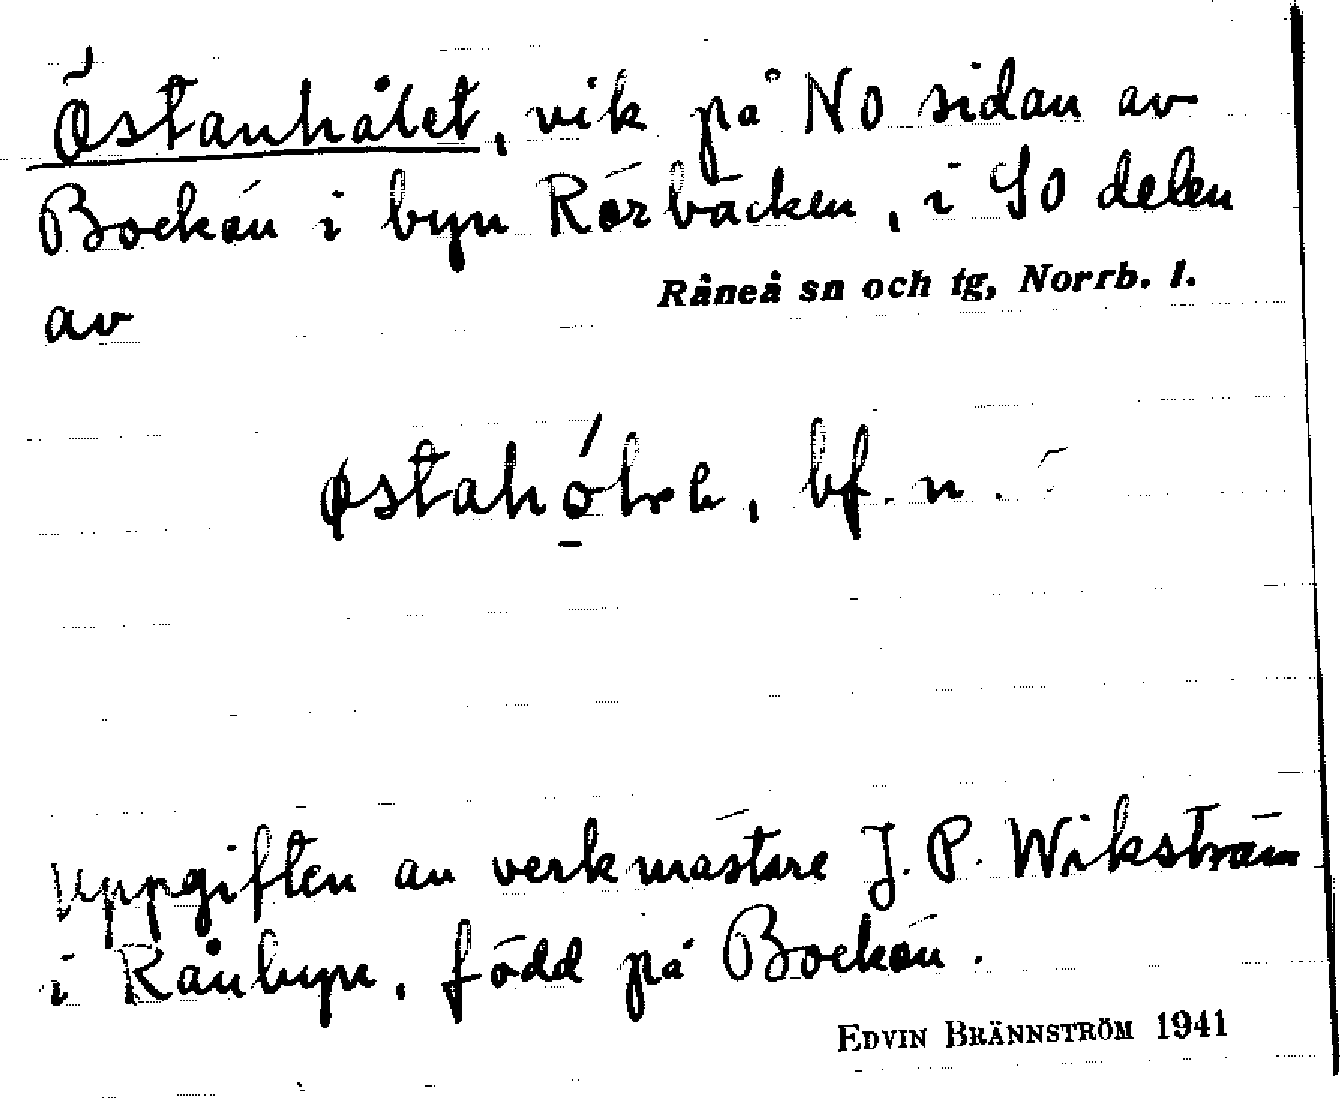 Östanhålet, vik på NO sidan av
Bockön i byn Rörbäcken, i SO delen
av Råneå sn och tg, Norrb. l.
bf. n.
Uppgiften av verkmästare J. P. Wikström
i Rånbyn, född på Bockön.
EDVIN BRÄNNSTRÖM 1941